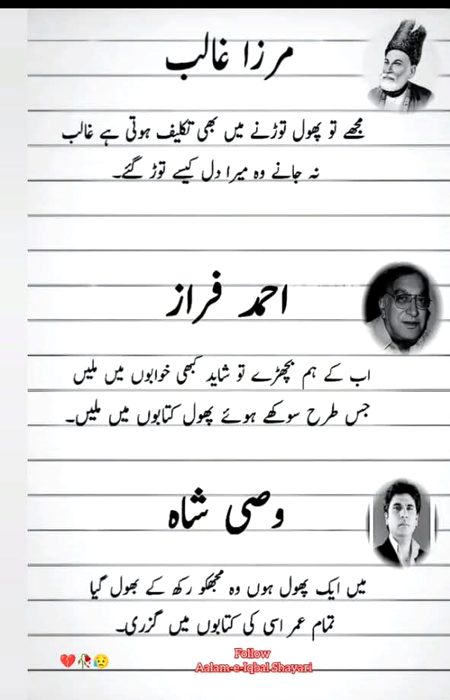 مرزا غالب
مجھے تو پھول توڑنے میں بھی تکلیف ہوتی ہے غالب
نہ جانے وہ میرا دل کیسے توڑ گئے۔
احمد فراز
اب کے ہم بچھڑے تو شاید کبھی خوابوں میں ملیں
جس طرح سوکھے ہوئے پھول کتابوں میں ملیں۔
وصی شاہ
میں ایک پھول ہوں وہ مجھکو رکھ کے بھول گیا
تمام عمر اسی کی کتابوں میں گزری۔
Follow
Aalam-e-Iqbal Shayari